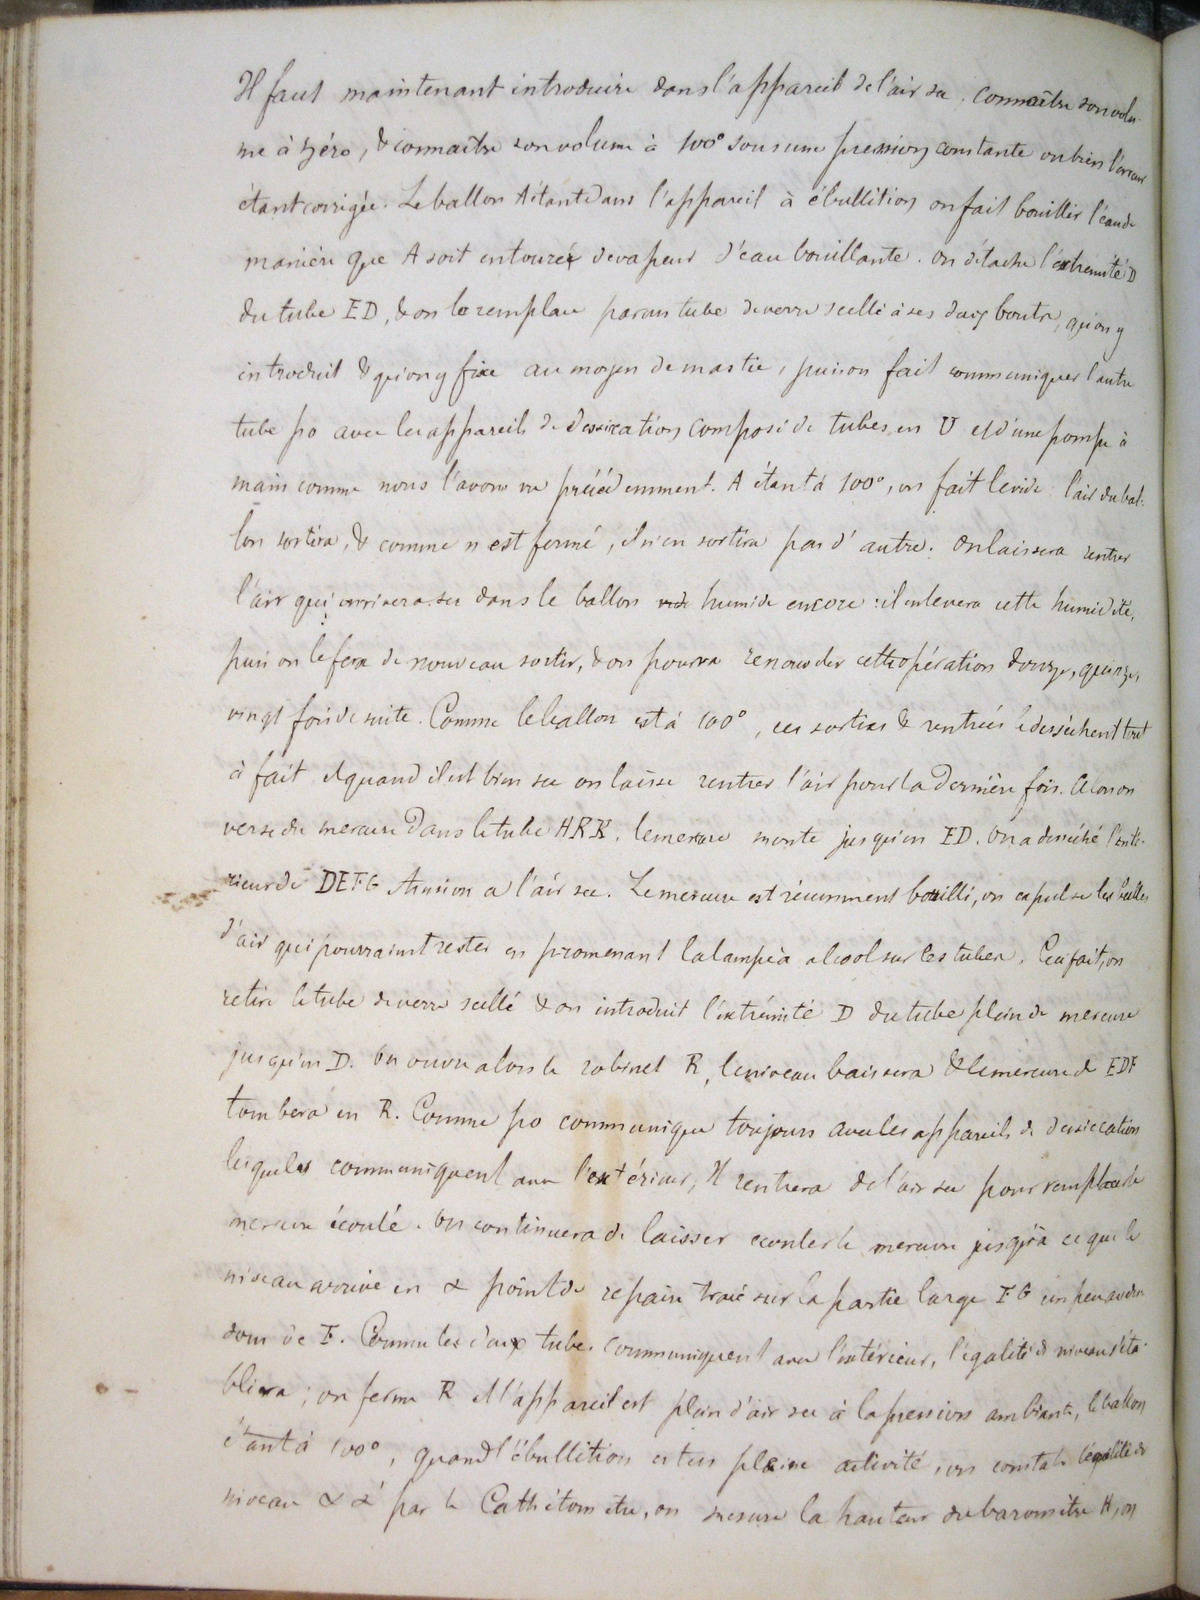 Il faut maintenant introduire dans l'appareil de l'air sec, connaître son volu-
me à zéro, & connaître son volume à 100° sous une pression constante ou bien l'erreur
étant corrigée. Le ballon A étant dans l'appareil à ébullition on fait bouillir l'eau de
manière que A soit entouré de vapeur d'eau bouillante. On détache l'extrémité D
du tube ED, & on le remplace par un tube de verre scellé à ses deux bouts, qu'on y
introduit & qu'on y fixe au moyen de mastic, puis on fait communiquer l'autre
tube po avec les appareils de dessication composé de tubes en U et d'une pompe à
main comme nous l'avons vu précédemment. A étant à 100°, on fait le vide l'air du bal-
lon sortira, & comme n est fermé, il n'en sortira pas d'autre. On laissera rentrer
l'air qui arrivera sec dans le ballon humide encore : il enlevera cette humidité,
puis on le fera de nouveau sortir, & on pourra renouveler cette opération douze, quinze,
vingt fois de suite. Comme le ballon est à 100°, ces sorties & rentrées le dessèchent tout
à fait et quand il est bien sec on laisse rentrer l'air pour la dernière fois. Alors on
verse du mercure dans le tube HRK. le mercure monte jusqu'en ED. On a desséché l'inté-
rieur de DEFG l'air sec. Le mercure est récemment bouilli, on expulse les bulles
d'air qui pourraient rester en promenant la lampe à alcool sur les tubes. Ceci fait, on
retire le tube de verre scellé & on introduit l'extrémité D du tube plein de mercure
jusqu'en D. On ouvre alors le robinet R, le niveau baissera & le mercure de EDF
tombera en R. Comme po communique toujours avec les appareils de dessiccation
lesquels communiquent avec l'extérieur, Il rentrera de l'air sec pour remplacer le
mercure écoulé. On continuera de laisser écouler le mercure jusqu'à ce que le
niveau arrive en α point de repair tracé sur la partie large FG un peu au des-
sous de F. Comme les deux tubes communiquent avec l'extérieur, l'égalité de niveau s'éta-
blira ; on ferme R et l'appareil est plein d'air sec à la pression ambiante, le ballon
étant à 100°, quand l'ébullition est en pleine activité, on constate l'égalité de
niveau α α' par le Cathétomètre, on mesure la hauteur du baromètre H, on